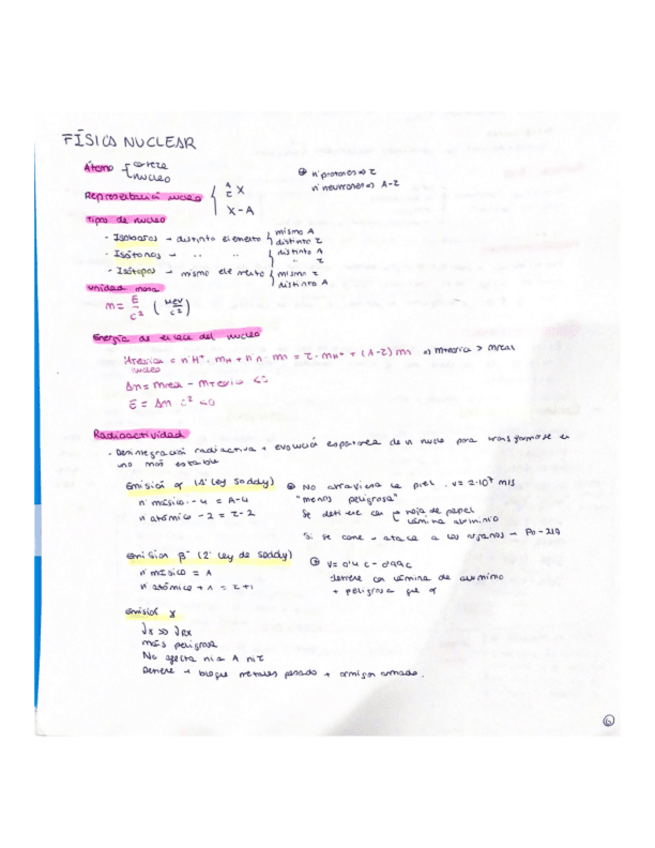 FÍSICA NUCLEAR
Átomo { corteza
núcleo
⊕ nº protones => Z
nº neutrones => A-Z
Representación núcleo { A Z X
X - A
Tipos de núcleo
- Isobaros → distinto elemento { mismo A
distinto Z
- Isótonos → " " { distinto A
" Z
- Isótopos → mismo elemento { mismo Z
distinto A
unidad masa
m = E/c² (MeV/c²)
Energía de enlace del núcleo
Mteórica núcleo = nºH⁺ · mH + nºn · mn = Z · mH⁺ + (A-Z) mn => mteórica > mreal
Δm = mreal - mteórica <0
E = Δm c² <0
Radioactividad
- Desintegración radiactiva → evolución espontánea de un núcleo para transformarse en
uno más estable
Emisión α (1ª Ley Soddy)
nº másico - 4 = A-4
nº atómico - 2 = Z-2
⊕ No atraviesa la piel. v = 2·10⁷ m/s
"menos peligrosa"
Se detiene con { hoja de papel
lámina aluminio
Si se come → ataca a los órganos → Po-210
Emisión β⁻ (2ª Ley de Soddy)
nº másico = A
nº atómico + 1 = Z+1
⊕ V = 0'4 c - 0'99c
detiene con lámina de aluminio
+ peligrosa que α
Emisión γ
γ >> RX
más peligrosa
No afecta ni a A ni Z
Detiene → bloque metales pesado + ormigon armado.
6